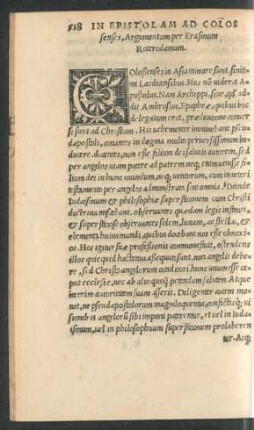 518 IN EPISTOLAM AD COLOS
senses, Argumentum per Erasmum
Roterodamum.
COlossenses in Asia minore sunt, finiti-
mi Laodicensibus. Hos nō viderat A-
postolus. Nam Archippi, siue, qđ ad-
dit Ambrosius, Epaphræ, quibus hoc
delegatum erat, prædicatione conuer
si sunt ad Christum. Hi vehementer inuitabant pseu-
dapostoli, conantes in dogma multo perniciosissimum in-
ducere, docentes, non esse filium dei salutis autorem, sed
per angelos aditum patere ad patrem: neq; enim venisse fi-
lium dei in hunc mundum, neq; venturum, cum in veteri
testamento per angelos administrata sint omnia. Deinde
Iudaismum & philosophiæ superstitionem cum Christi
doctrina miscebant, obseruantes quædam legis instituta,
& superstitiose obseruantes solem, lunam, ac stellas, &
elementa huius mundi, quibus docebant nos esse obnoxi-
os. Hos igitur suæ professionis commonefacit, ostendens
illos quicquid hactenus assequuti sunt, non angelis debe-
re, sed Christo angelorum
put ecclesiæ, nec ab alio quoq; petendam salutem. Atque
interim autoritatem suam asserit. Diligenter autem monet,
ne pseudapostolorum magniloquentia, aut fictis
visionib. angelorū sibi imponi paterentur, et vel in Iuda-
ismum, vel in philosophicam superstitionem prolaberen
tur. Atq;